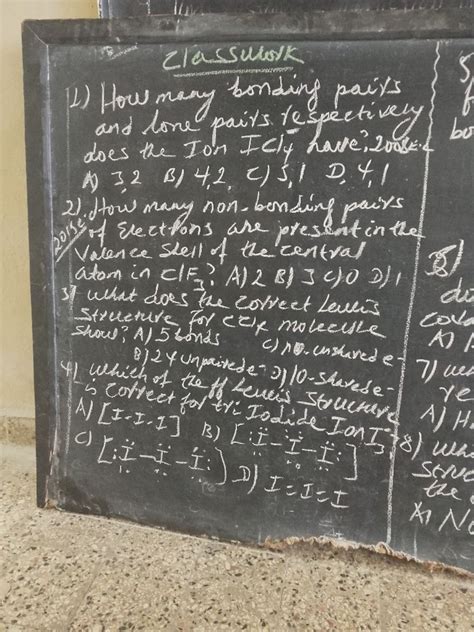 Classwork
1) How many bonding pairs
and lone pairs respectively
does the Ion ICl4 have? 2008E.C
A) 3,2 B) 4,2 C) 5,1 D, 4,1
2). How many non-bonding pairs
2015E.C of Electrons are present in the
Valence shell of the central
atom in ClF3? A) 2 B) 3 C) 0 D) 1
3) what does the correct Lewis
structure for CCl4 molecule
show? A) 5 bonds C) no. unshared e-
B) 24 unpaired e- D) 10-shared e-
4) which of the ff Lewis Structure
is correct for tri Iodide Ion I3-
A) [I-I-I] B) [:I-I-I:]
C) [:I-I-I:) D) I=I=I
S
bo
8)
di
cova
A) 
7) wh
re
A) H
8) Wh
Struc
the
A) No